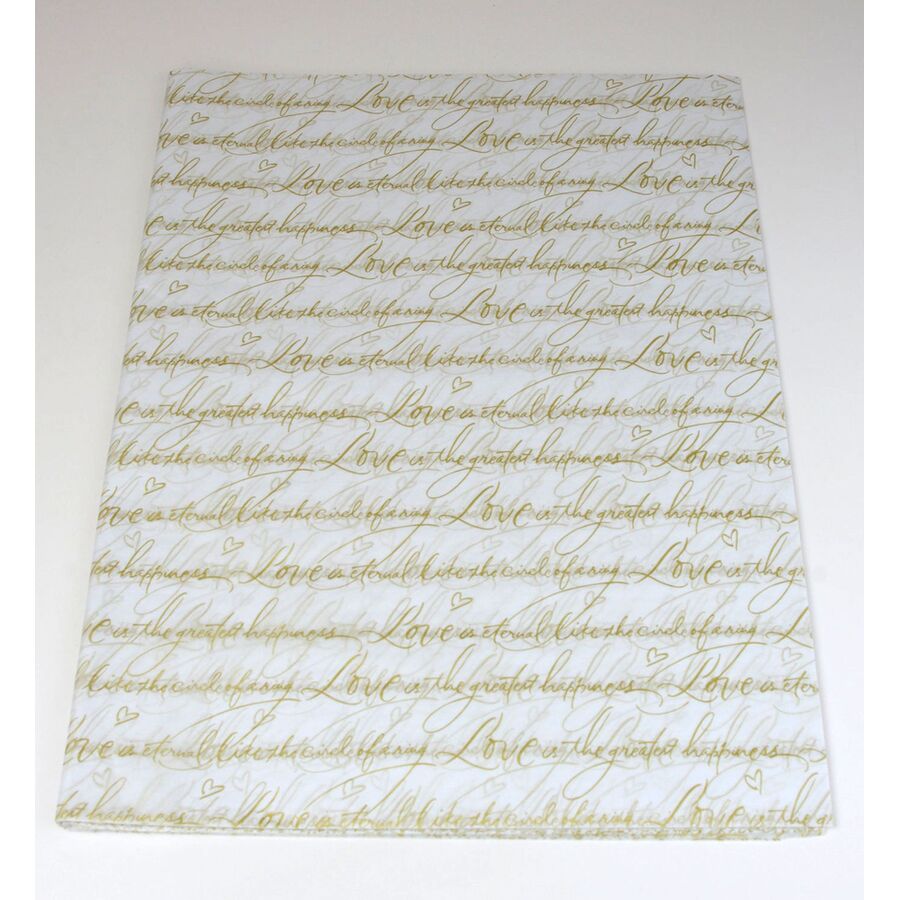 like the circle of a ring Love is the greatest happiness Love is eter
ove is eternal like the circle of a ring Love is the greatest happiness
t happiness Love is eternal like the circle of a ring Love is the gr
e is the greatest happiness Love is eternal like the circle of a ring L
like the circle of a ring Love is the greatest happiness Love is eter
ove is eternal like the circle of a ring Love is the greatest happiness
est happiness Love is eternal like the circle of a ring Love is the gr
e is the greatest happiness Love is eternal like the circle of a ring L
like the circle of a ring Love is the greatest happiness Love is eter
ove is eternal like the circle of a ring Love is the greatest happiness
at happiness Love is eternal like the circle of a ring Love is the gr
e is the greatest happiness Love is eternal like the circle of a ring L
like the circle of a ring Love is the greatest happiness Love is eter
ove is eternal like the circle of a ring Love is the greatest happiness
test happiness Love is eternal like the circle of a ring Love is the g